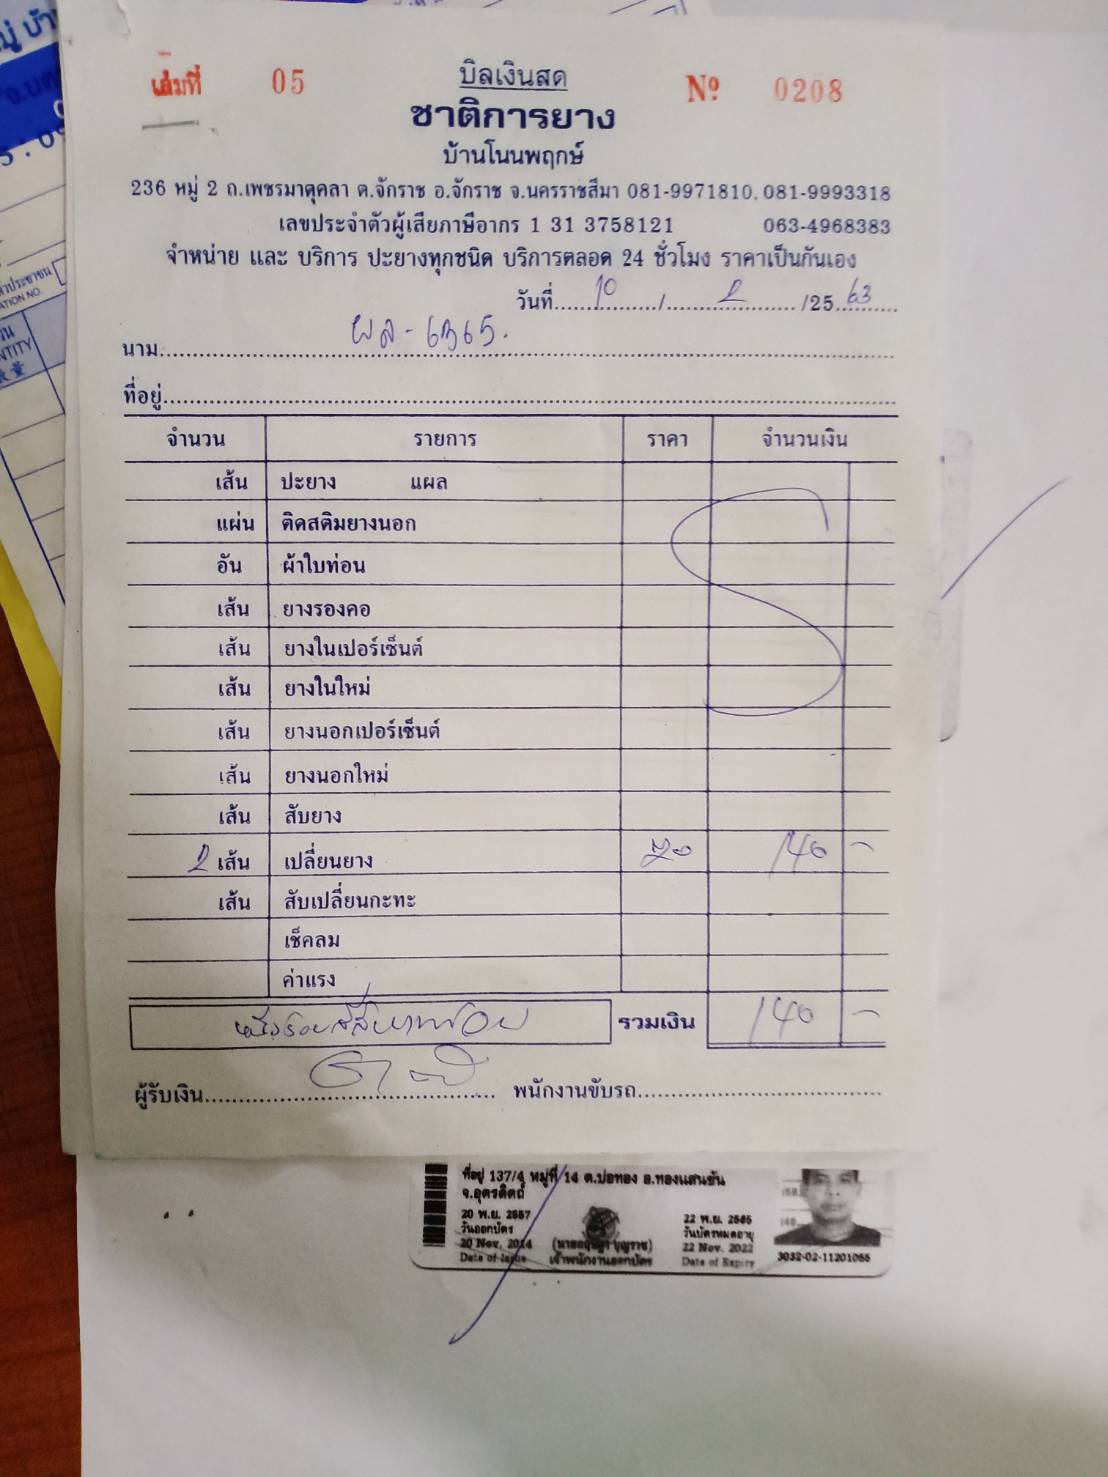 เล่มที่ 05 บิลเงินสด Nº 0208
ชาติการยาง
บ้านโนนพฤกษ์
236 หมู่ 2 ถ.เพชรมาตุคลา ต.จักราช อ.จักราช จ.นครราชสีมา 081-9971810, 081-9993318
เลขประจำตัวผู้เสียภาษีอากร 1 31 3758121 063-4968383
จำหน่าย และ บริการ ปะยางทุกชนิด บริการตลอด 24 ชั่วโมง ราคาเป็นกันเอง
วันที่ 10 / 2 /25 63
นาม ผล-6365.
ที่อยู่
จำนวน รายการ ราคา จำนวนเงิน
เส้น ปะยาง แผล
แผ่น ติดสติมยางนอก
อัน ผ้าใบท่อน
เส้น ยางรองคอ
เส้น ยางในเปอร์เซ็นต์
เส้น ยางในใหม่
เส้น ยางนอกเปอร์เซ็นต์
เส้น ยางนอกใหม่
เส้น สับยาง
2 เส้น เปลี่ยนยาง 70 140 -
เส้น สับเปลี่ยนกะทะ
เช็คลม
ค่าแรง
หนึ่งร้อยสี่สิบบาทถ้วน รวมเงิน 140 -
ผู้รับเงิน พนักงานขับรถ
ที่อยู่ 137/4 หมู่ที่ 14 ต.บ่อทอง อ.ทองแสนขัน
จ.อุตรดิตถ์
20 พ.ย. 2557 22 พ.ย. 2565
วันออกบัตร วันบัตรหมดอายุ
20 Nov. 2014 22 Nov. 2022
Date of Issue เจ้าพนักงานออกบัตร Date of Expiry
3032-02-11201066